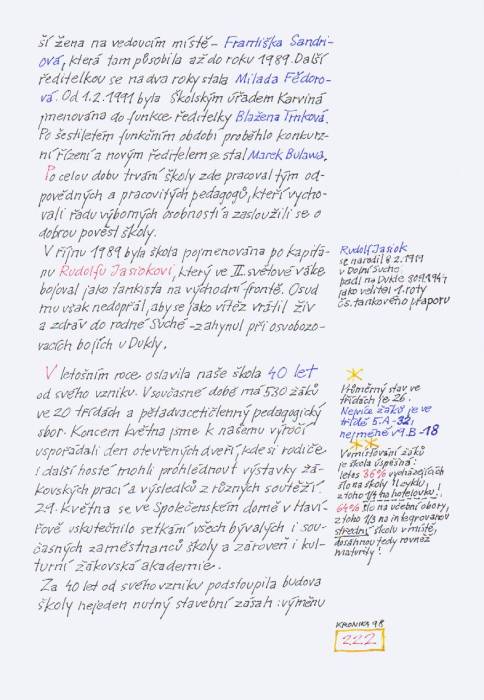 ší žena na vedoucím místě - Františka Sandri-
ová, která tam působila až do roku 1989. Další
ředitelkou se na dva roky stala Milada Fědoro-
vá. Od 1.2.1991 byla školským úřadem Karviná
jmenována do funkce ředitelky Blažena Trnková.
Po šestiletém funkčním období proběhlo konkurz-
ní řízení a novým ředitelem se stal Marek Bulawa.
Po celou dobu trvání školy zde pracoval tým od-
povědných a pracovitých pedagogů, kteří vycho-
vali řadu výborných osobností a zasloužili se o
dobrou pověst školy.
V říjnu 1989 byla škola pojmenována po kapitá-
nu Rudolfu Jasiokovi, který ve II. světové válce
bojoval jako tankista na východní frontě. Osud
mu však nedopřál, aby se jako vítěz vrátil živ
a zdráv do rodné Suché - zahynul při osvobozo-
vacích bojích u Dukly.
V letošním roce oslavila naše škola 40 let
od svého vzniku. V současné době má 530 žáků
ve 20 třídách a pětadvacetičlenný pedagogický
sbor. Koncem května jsme k našemu výročí
uspořádali den otevřených dveří, kde si rodiče
i další hosté mohli prohlédnout výstavky žá-
kovských prací a výsledků z různých soutěží.
29. května se ve Společenském domě v Haví-
řově uskutečnilo setkání všech bývalých i sou-
časných zaměstnanců školy a zároveň i kul-
turní žákovská akademie.
Za 40 let od svého vzniku podstoupila budova
školy nejeden nutný stavební zásah: výměnu
Rudolf Jasiok
se narodil 8.2.1919
v Dolní Suché
padl na Dukle
jako velitel 1. roty
čs. tankového praporu
Průměrný stav ve
třídách je 26.
Nejvíce žáků je ve
třídě 5.A - 32,
nejméně v 9.B - 18
V umisťování žáků
je škola úspěšná:
letos 36% vycházejících
šlo na školy
z toho 1/4 na hotelovku!
64% šlo na učební obory,
z toho 1/3 na integrovanou
střední školu v místě,
dosáhnou tedy rovněž
maturity!
KRONIKA 98
222